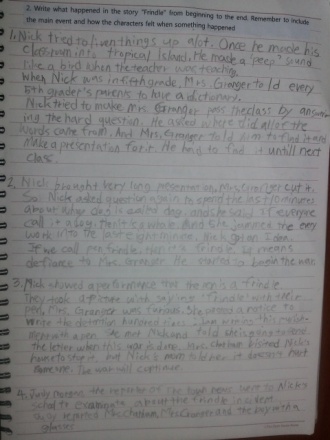 2. Write what happened in the story "Frindle" from beginning to the end. Remember to include
the main event and how the characters felt when something happened
1. Nick tried to liven things up alot. Once he made his
classroom into tropical Island. He made a "peep" sound
like a bird when the teacher was teaching.
When Nick was in fifth grade, Mrs. Granger told every
5th grader's parents to have a dictionary.
Nick tried to make Mrs Granger the class by answer
ing the hard question. He asked where did all of the
words came from. And Mrs. Granger told him to find it and
make a presentation for it. He had to find it untill next
class.
2. Nick brought very long presentation, Mrs. Granger cut it.
So Nick asked question again to spend the last minutes
about why dog is called dog, and she said if everyone
call it
work in the last eight minute. Nick got an Idea.
If we call pen frindle,
defiance to Mrs. Granger. He started to begin the war.
3. Nick showed a performance that the pen is a frindle.
They took a picture with saying "Frindle" with their
pen, Mrs. Granger was furious. She posted a notice to
write the detention hundred times.
with a pen. She met Nick and told she is going to send
the letter when this war is done. Mrs. Chatham visited Nick's
home to stop it, but Nick's mom told her it doesn't most
The war still continue.
4. Judy Morgan the reporter of the town news went to Nick's
school to about the frindle incident.
Judy reported Mrs. Chatham, Mrs Granger and the boy with a
glasses